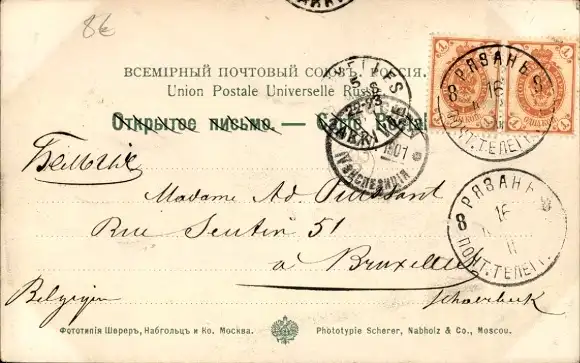 8€
ВСЕМІРНЫЙ ПОЧТОВЫЙ СОЮЗЪ. РОССІЯ.
Union Postale Universelle Russie
Открытое письмо. — Carte Postale
РЯЗАНЬ
8 16
ПОЧТ. ТЕЛЕГР.
22-23
IV ЭКСПЕДИЦІЯ
1901
Бельгія
Madame Ad.
Rue Seutin 51
à Bruxelles
Schaerbeek
Belgique
РЯЗАНЬ
16
8
ПОЧТ. ТЕЛЕГР.
Фототипія Шереръ, Набгольцъ и Ко. Москва.
Phototypie Scherer, Nabholz & Co., Moscou.